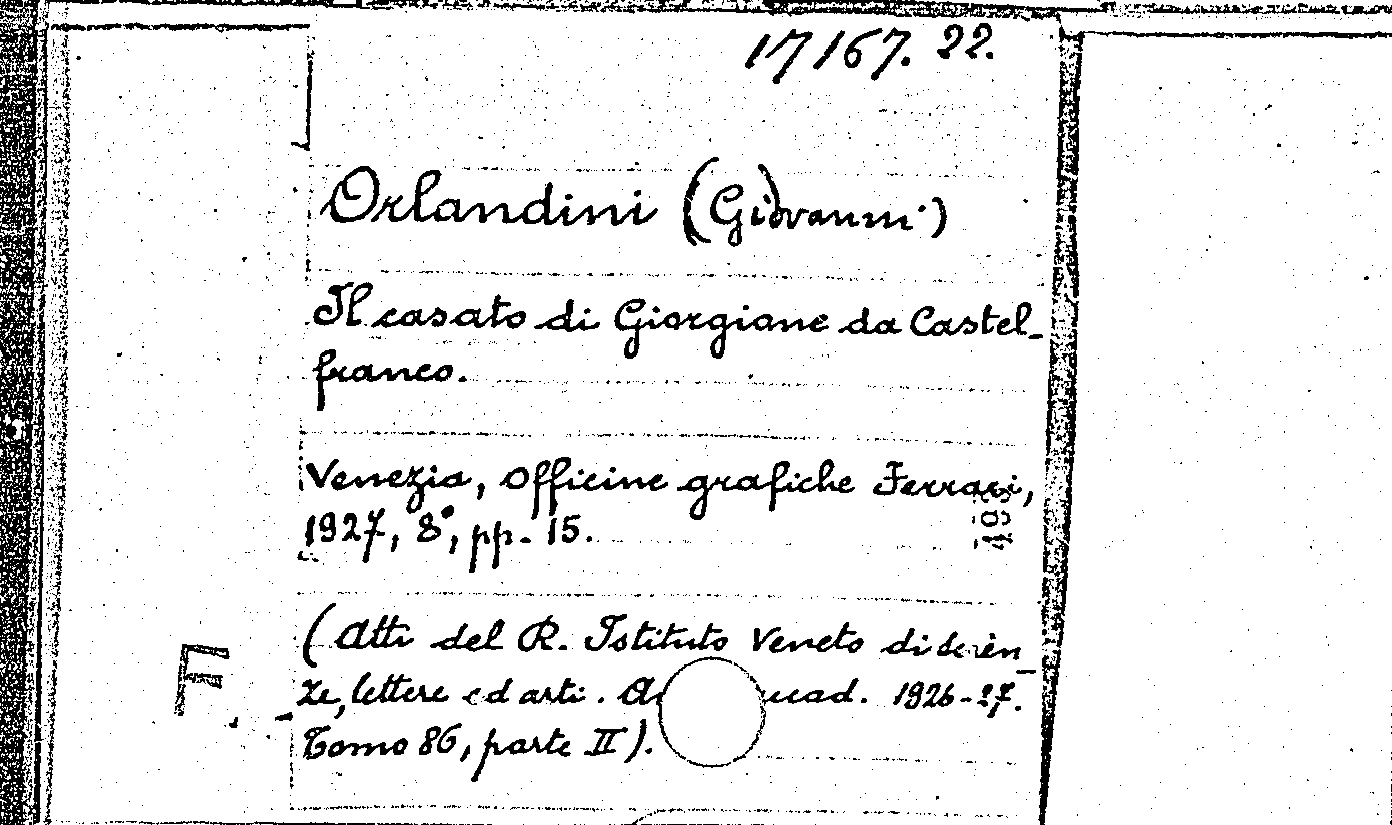 17167. 22.
Orlandini (Giovanni)
Il casato di Giorgione da Castel-
franco.
Venezia, Officine grafiche Ferrari,
1927, 8°, pp. 15.
(Atti del R. Istituto Veneto di scien-
F.
ze, lettere ed arti. 1926-27.
Tomo 86, parte II).